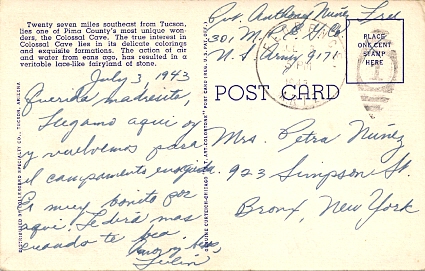 Twenty seven miles southeast from Tucson,
lies one of Pima County's most unique won-
ders, the Colossal Cave. The true interest in
Colossal Cave lies in its delicate colorings
and exquisite formations. The action of air
and water from eons ago, has resulted in a
veritable lace-like fairyland of stone.
July 3, 1943
Querida madrecita,
Llegamo aqui hoy
y volvemos para
el campamento enseguida
Es muy bonito por
aqui. Te diré mas
cuando te vea.
Amor y besos,
DISTRIBUTED BY LOLLESGARD SPECIALTY CO., TUCSON, ARIZONA
GENUINE CURTEICH-CHICAGO "C.T. ART-COLORTONE" POST CARD (REG. U.S. PAT. OFF.)
Pvt. Anthony Nuñez Free
301 M.P.E.G. Co.
U.S. Army 9171
PLACE
ONE CENT
STAMP
HERE
POST CARD
Mrs. Petra Nuñez
923 Simpson St.
Bronx, New York